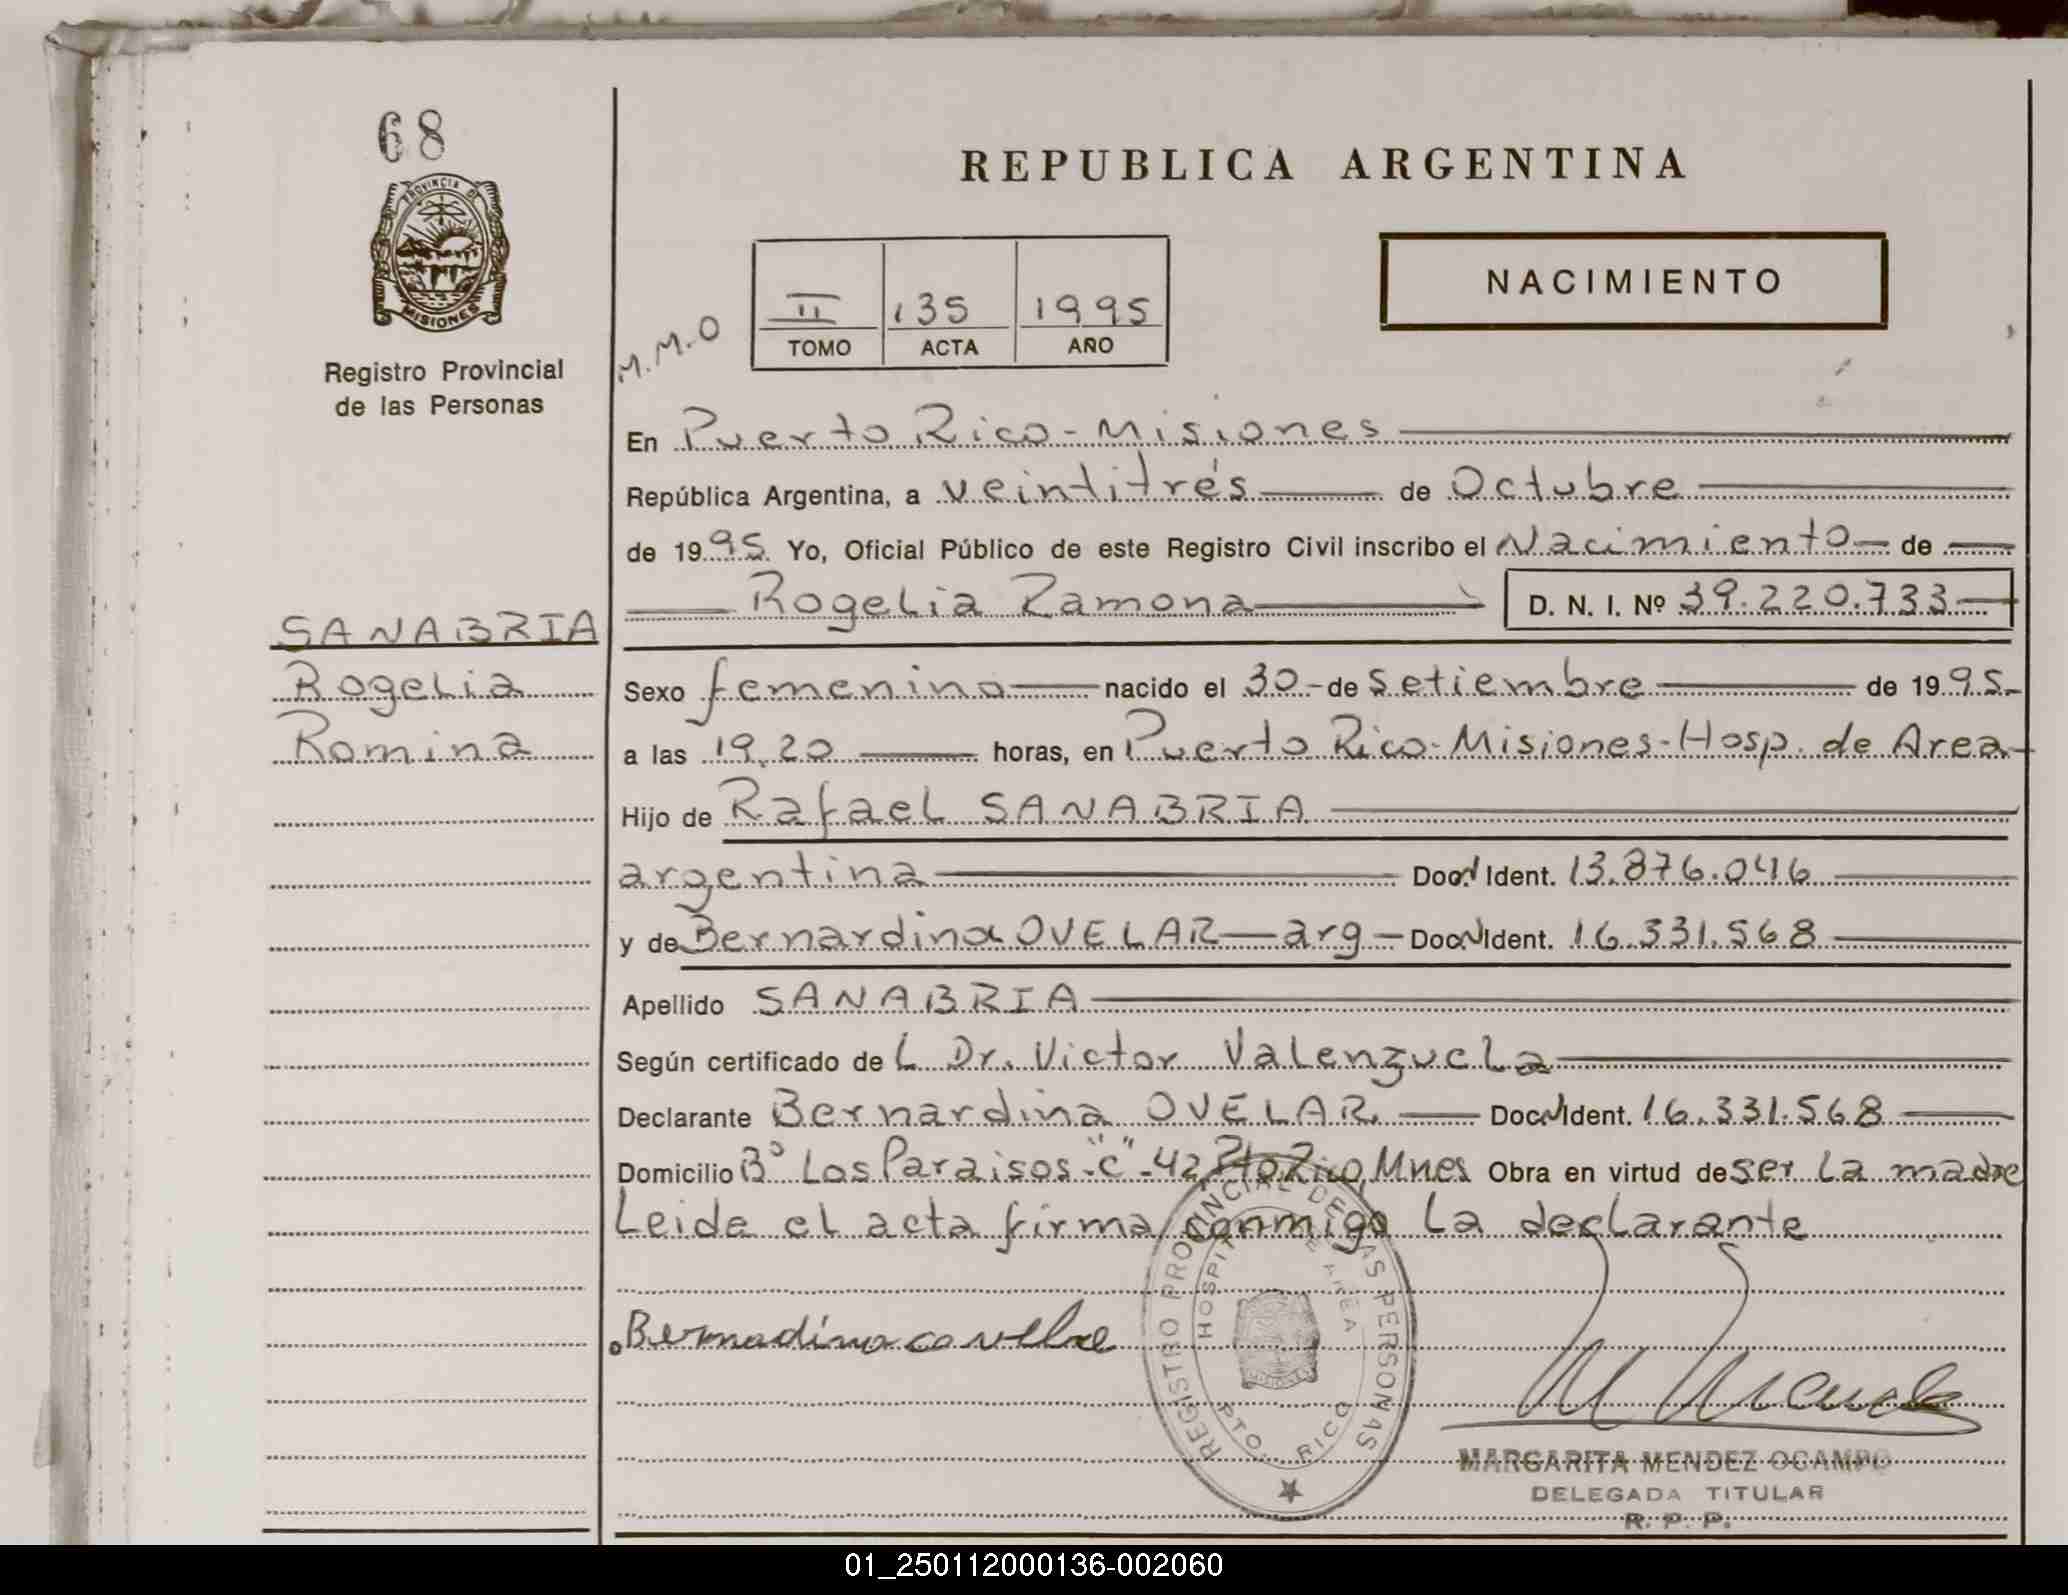 68
PROVINCIA DE
MISIONES
Registro Provincial
de las Personas
REPUBLICA ARGENTINA
NACIMIENTO
M.M.O
II 135 1995
TOMO ACTA AÑO
En Puerto Rico - Misiones
República Argentina, a veintitrés de Octubre
de 1995. Yo, Oficial Público de este Registro Civil inscribo el Nacimiento de
Rogelia Ramona D. N. I. Nº 39.220.733
SANABRIA
Rogelia
Romina
Sexo femenino nacido el 30 - de setiembre de 1995.
a las 19.20 horas, en Puerto Rico - Misiones - Hosp. de Area
Hijo de Rafael SANABRIA
argentina Doc. N Ident. 13.876.046
y de Bernardina OVELAR — arg — Doc. N Ident. 16.331.568
Apellido SANABRIA
Según certificado de L Dr. Victor Valenzuela
Declarante Bernardina OVELAR. Doc. N Ident. 16.331.568
Domicilio Bº Los Paraisos - "C" - 42 Pto Rico, Mnes Obra en virtud de ser La madre
Leida el acta firma conmigo La declarante
REGISTRO PROVINCIAL DE LAS PERSONAS
HOSPITAL DE AREA
MISIONES
PTO. RICO
MARGARITA MENDEZ OCAMPO
DELEGADA TITULAR
R. P. P.
01_250112000136-002060